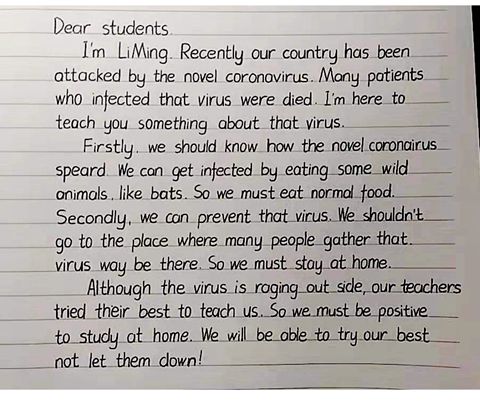 Dear students.
I'm LiMing. Recently our country has been
attacked by the novel coronavirus. Many patients
who infected that virus were died. I'm here to
teach you something about that virus.
Firstly, we should know how the novel coronairus
speard. We can get infected by eating some wild
animals, like bats. So we must eat normal food.
Secondly, we can prevent that virus. We shouldn't
go to the place where many people gather that.
virus way be there. So we must stay at home.
Although the virus is raging out side, our teachers
tried their best to teach us. So we must be positive
to study at home. We will be able to try our best
not let them down!